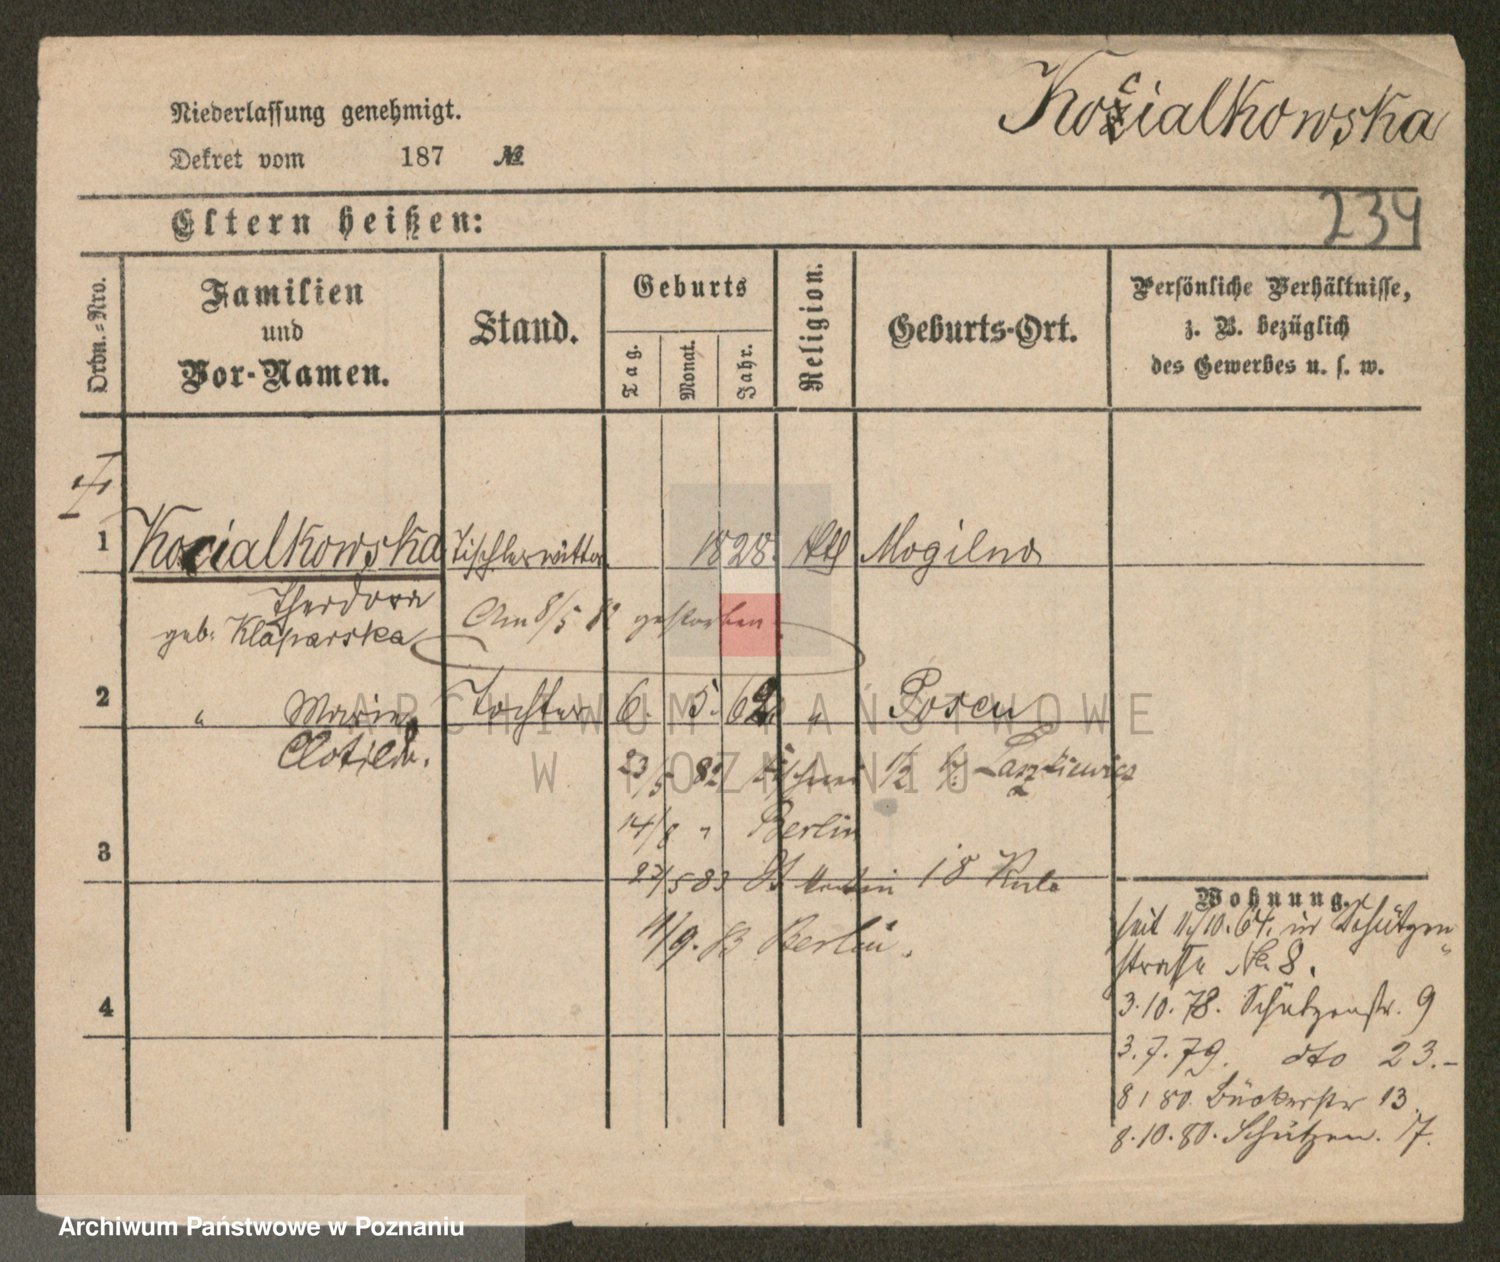 Niederlassung genehmigt.
Dekret vom 187 №
Kocialkowska
234
Eltern heißen:
Ordn.=Nro.
Familien
und
Vor-Namen.
Stand.
Geburts
Tag.
Monat.
Jahr.
Religion.
Geburts-Ort.
Persönliche Verhältnisse,
z. B. bezüglich
des Gewerbes u. s. w.
1 Kocialkowska Tischlerwittwe 1828. kth Mogilno
Theodora
geb. Klaparska
Am 8/5 82 gestorben
2 " Marie Tochter 6. 5. 62. " Posen
Clotilde.
23/5 82 1/2 b. Laszkiewicz
14/8 " Berlin
3
27/5 83 St Martin 18
11/9. 83 Berlin.
4
Wohnung.
seit 11/10. 64. in Schützen
strasse No. 8.
3.10.78. Schützenstr. 9
3.7.79. dto 23.-
8 1 80. Bäckerstr 13.
8.10.80. Schützen. 17.
ARCHIWUM PAŃSTWOWE
W POZNANIU
Archiwum Państwowe w Poznaniu